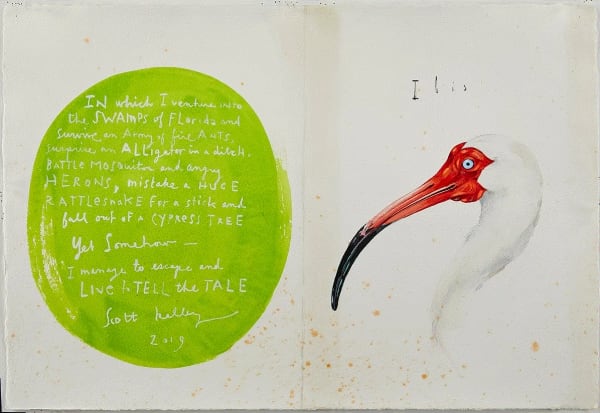 IN which I venture INTO
the SWAMPS of FLORIDA and
survive an Army of fire ANTS,
surprise an ALLigator in a ditch,
BATTLE MOSQUITOS and angry
HERONS, mistake a HUGE
RATTLESNAKE FOR a stick and
fall out of a CYPRESS TREE
Yet Somehow —
I manage to escape and
LIVE to TELL the TALE
Scott Kelley
2019
Ibis